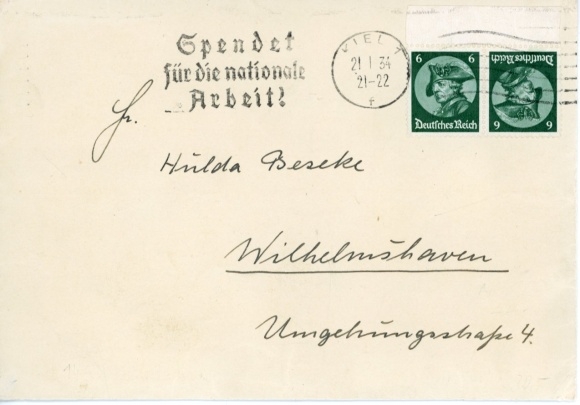 Spendet
für die nationale
Arbeit!
KIEL 1
21 1 34
21-22
f
6 6
Deutsches Reich
6 6
Deutsches Reich
Fr.
Hulda Beseke
Wilhelmshaven
Umgehungsstraße 4.